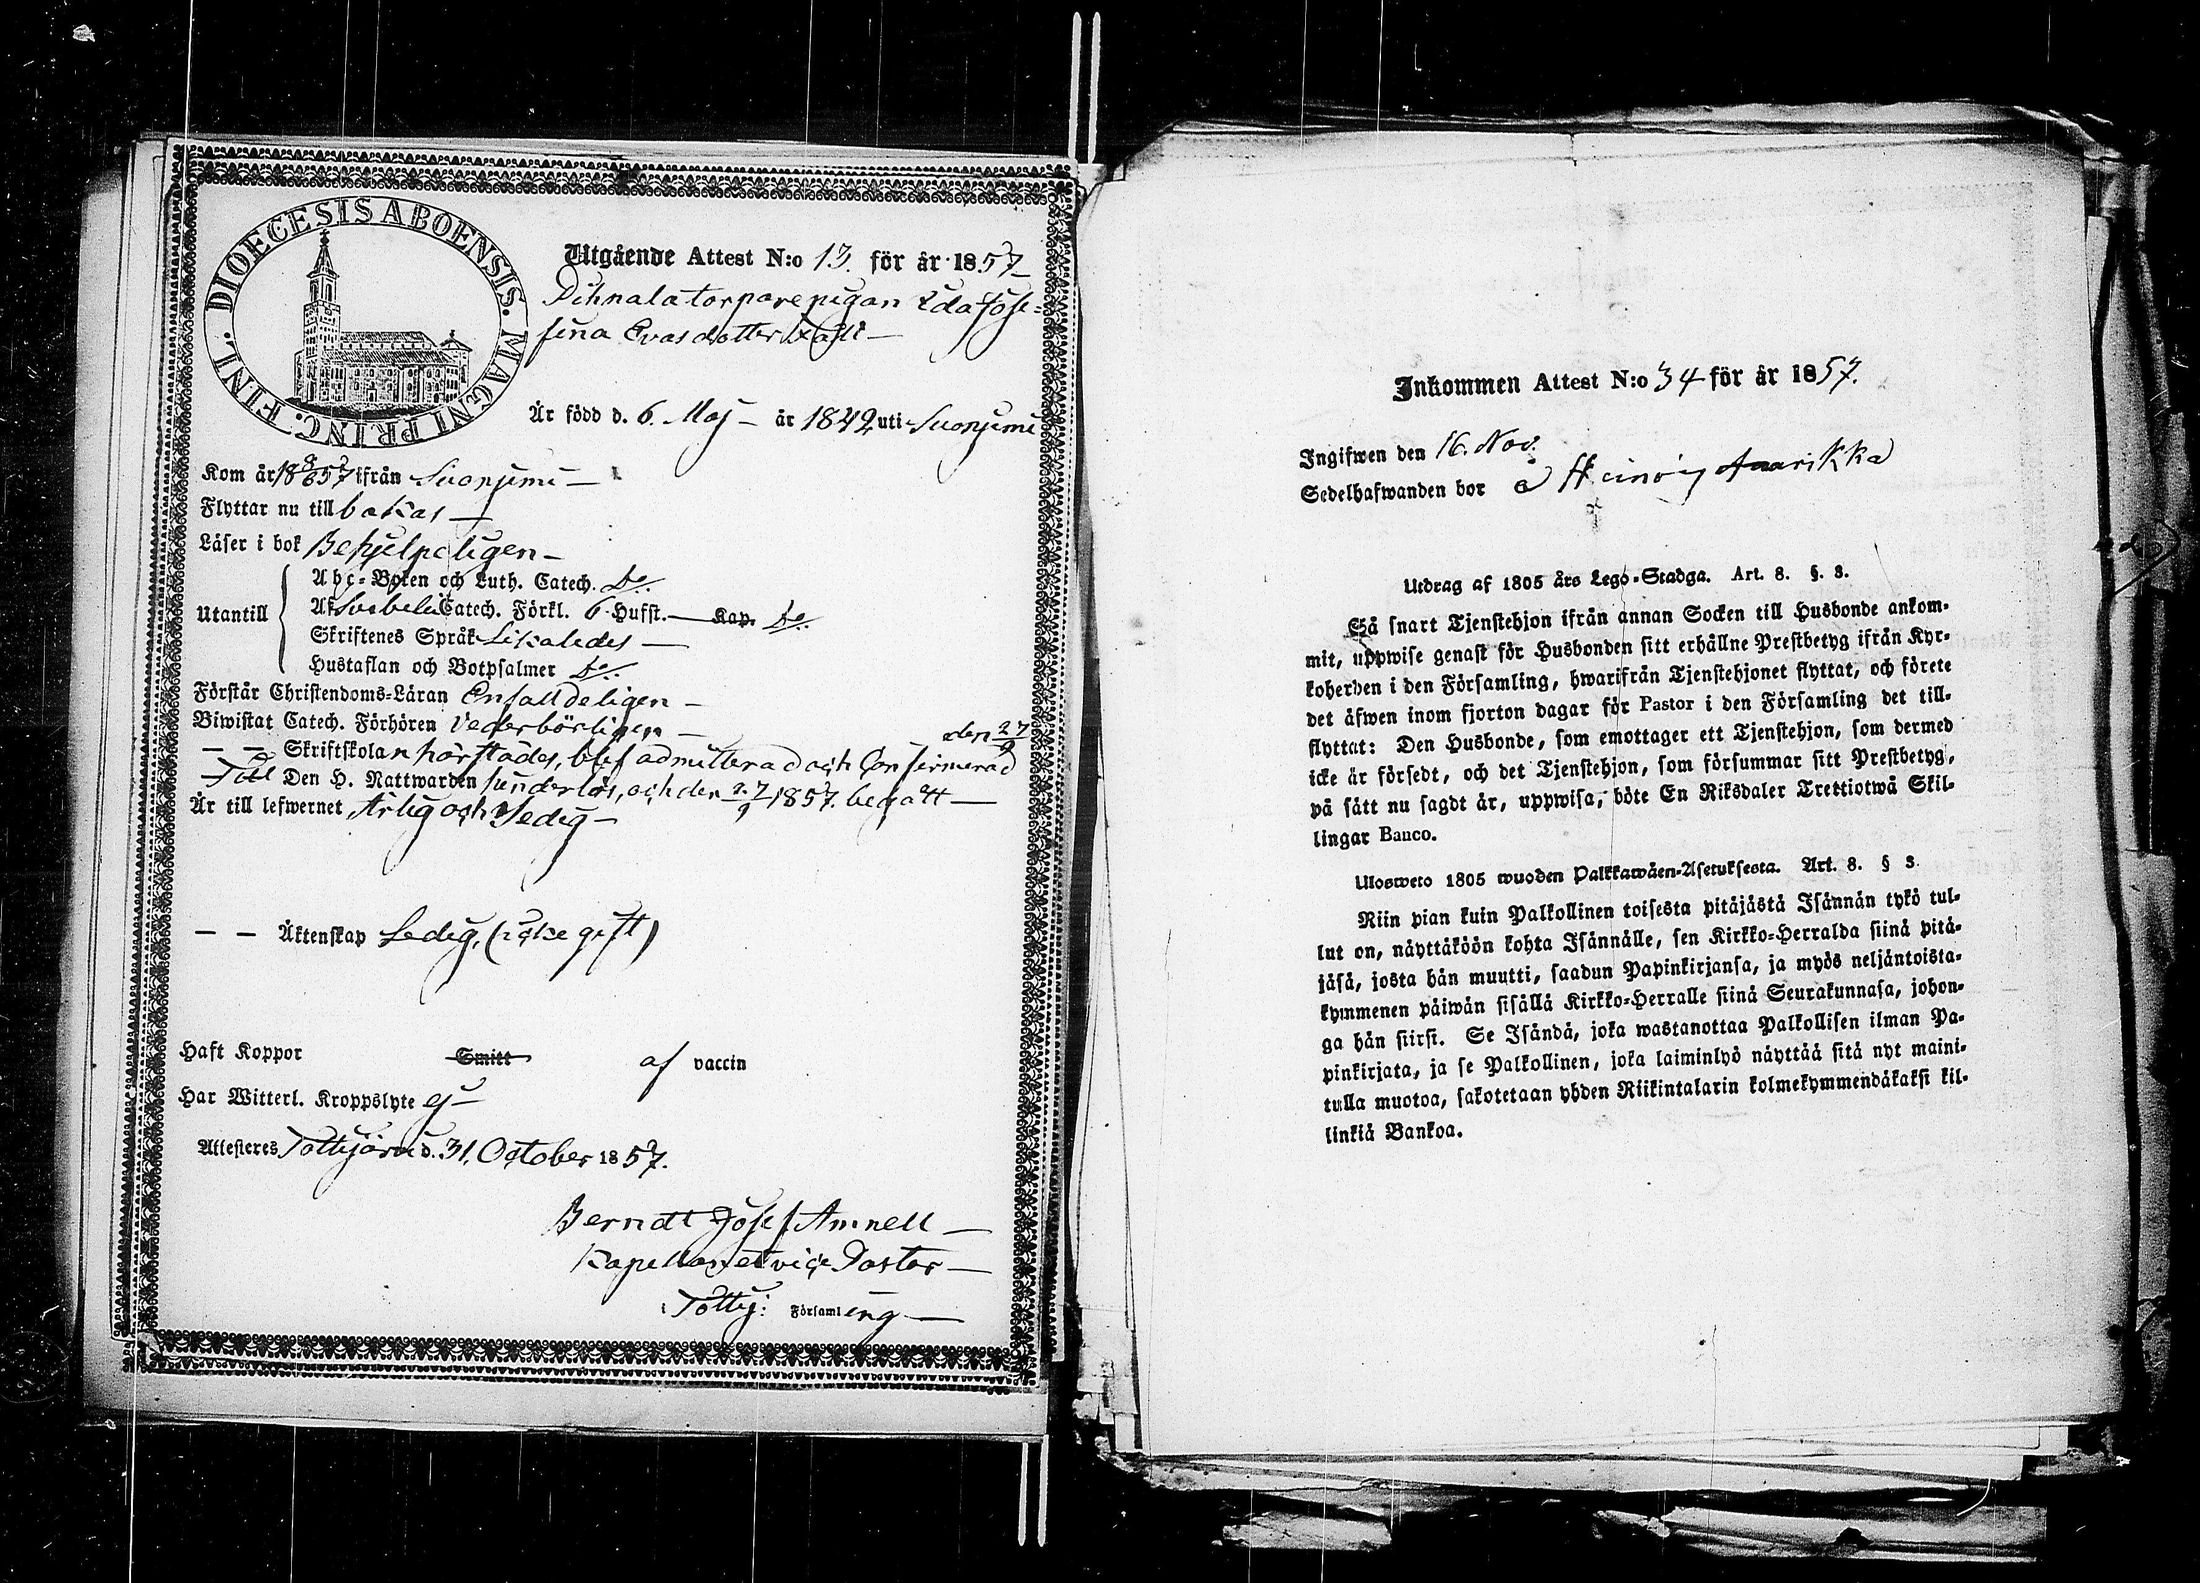 DIOECESIS ABOENSIS. MAGNI PRINC. FINL.
Utgående Attest N:o 13. för år 1857
Pihnala torpare pigan Ida Jose=
fina Evasdotter
Är född d. 6. Maj — år 1842 uti Suonjemi
Kom år 18 8/8 57 ifrån Suonjemi —
Flyttar nu till Lokas —
Läser i bok Behjelpeligen —
Utantill
Abc-Boken och Luth. Catech. Do.
Af Svebelii Catech. Förkl. 6 Hufst. — Kap. Do.
Skriftenes Språk Likaledes —
Hustaflan och Botpsalmer Do.
Förstår Christendoms-Läran Enfalldeligen —
Biwistat Catech. Förhören Vederbörligen —
— — Skriftskolan härstädes, blef admitterad och Confirmerad den 27/9
Den H. Nattwarden, och den 27/9 1857. begått —
Är till lefwernet Ärlig och Sedig —
— — Äktenskap Ledig, (icke gift)
Haft Koppor Smitt af vaccin
Har Witterl. Kroppslyte ej —
Attesteres Tottijärvi d. 31. October 1857.
Berndt Josef Amnell —
Kapellan et vice Pastor —
i Tottij: Församling —
Inkommen Attest N:o 34 för år 1857.
Ingifwen den 16. Nov.
Sedelhafwanden bor å Heinois Anarikka
Utdrag af 1805 års Lego-Stadga. Art. 8. §. 3.
Så snart Tjenstehjon ifrån annan Socken till Husbonde ankom-
mit, uppwise genast för Husbonden sitt erhållne Prestbetyg ifrån Kyr-
koherden i den Församling, hwarifrån Tjenstehjonet flyttat, och förete
det äfwen inom fjorton dagar för Pastor i den Församling det till-
flyttat: Den Husbonde, som emottager ett Tjenstehjon, som dermed
icke är försedt, och det Tjenstehjon, som försummar sitt Prestbetyg,
på sätt nu sagdt är, uppwisa, böte En Riksdaler Trettiotwå Skil-
lingar Banco.
Ulosweto 1805 wuoden Palkkawäen-Asetuksesta. Art. 8. § 3.
Niin pian kuin Palkollinen toisesta pitäjästä Isännän tykö tul-
lut on, näyttäköön kohta Isännälle, sen Kirkko-Herralda siinä pitä-
jäsä, josta hän muutti, saadun Papinkirjansa, ja myös neljäntoista-
kymmenen päiwän sisällä Kirkko-Herralle siinä Seurakunnasa, johon-
ga hän siirsi. Se Isändä, joka wastanottaa Palkollisen ilman Pa-
pinkirjata, ja se Palkollinen, joka laiminlyö näyttää sitä nyt maini-
tulla muotoa, sakotetaan yhden Riikintalarin kolmekymmendäkaksi kil-
linkiä Bankoa.